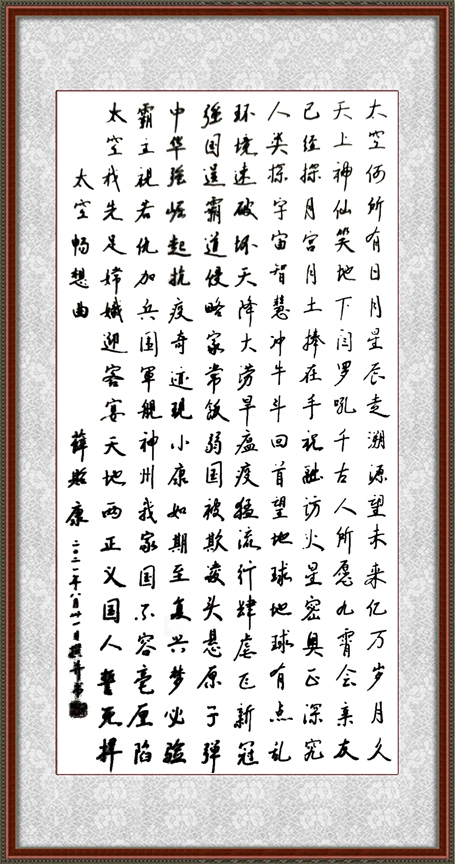 太空何所有日月星辰走溯源望未来亿万岁月久
天上神仙笑地下闫罗吼千古人所愿九霄会亲友
已经探月宫月土捧在手祝融访火星密奥正深究
人类探宇宙智慧冲牛斗回首望地球地球有点乱
环境速破坏天降大涝旱瘟疫猛流行肆虐新冠
强国逞霸道侵略家常饭弱国被欺凌头悬原子弹
中华强崛起抗疫奇迹现小康如期至复兴梦必验
霸主视若仇加兵围軍舰神州我家国不容毫厘陷
太空我先足嫦娥迎客宴天地两正义国人誓死捍
太空畅想曲 薛贻康 二〇二一年八月廿一日撰并书